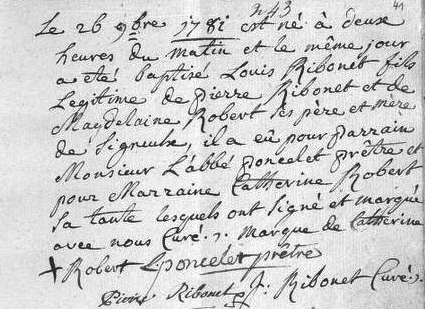 n 43
41
Le 26 9bre 1781 est né à deuse
heures du matin et le même jour
a eté baptise Louis Ribonet fils
Legitime de pierre Ribonet et de
Magdelaine Robert ses père et mere
de Signeulx, il a eû pour parrain
Monsieur L'abbé poncelet prêtre et
pour Marraine Catherine Robert
sa tante lesquels ont signé et marqué
avec nous Curé . Marque de Catherine
+ Robert poncelet prêtre
Pierre Ribonet J: Ribonet Curé